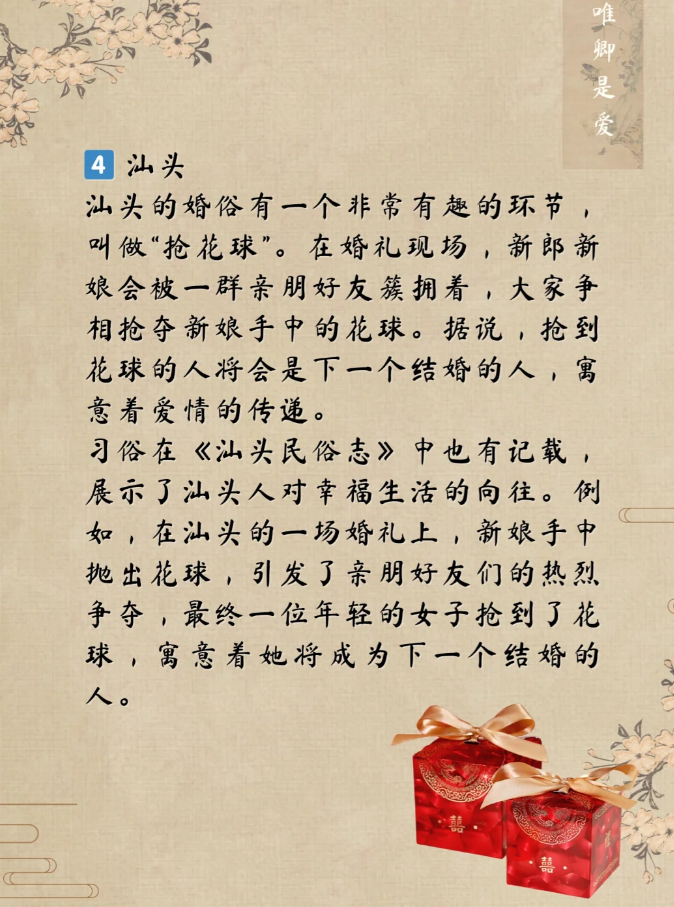 唯卿是爱
4 汕头
汕头的婚俗有一个非常有趣的环节，
叫做“抢花球”。在婚礼现场，新郎新
娘会被一群亲朋好友簇拥着，大家争
相抢夺新娘手中的花球。据说，抢到
花球的人将会是下一个结婚的人，寓
意着爱情的传递。
习俗在《汕头民俗志》中也有记载，
展示了汕头人对幸福生活的向往。例
如，在汕头的一场婚礼上，新娘手中
抛出花球，引发了亲朋好友们的热烈
争夺，最终一位年轻的女子抢到了花
球，寓意着她将成为下一个结婚的
人。
囍
囍